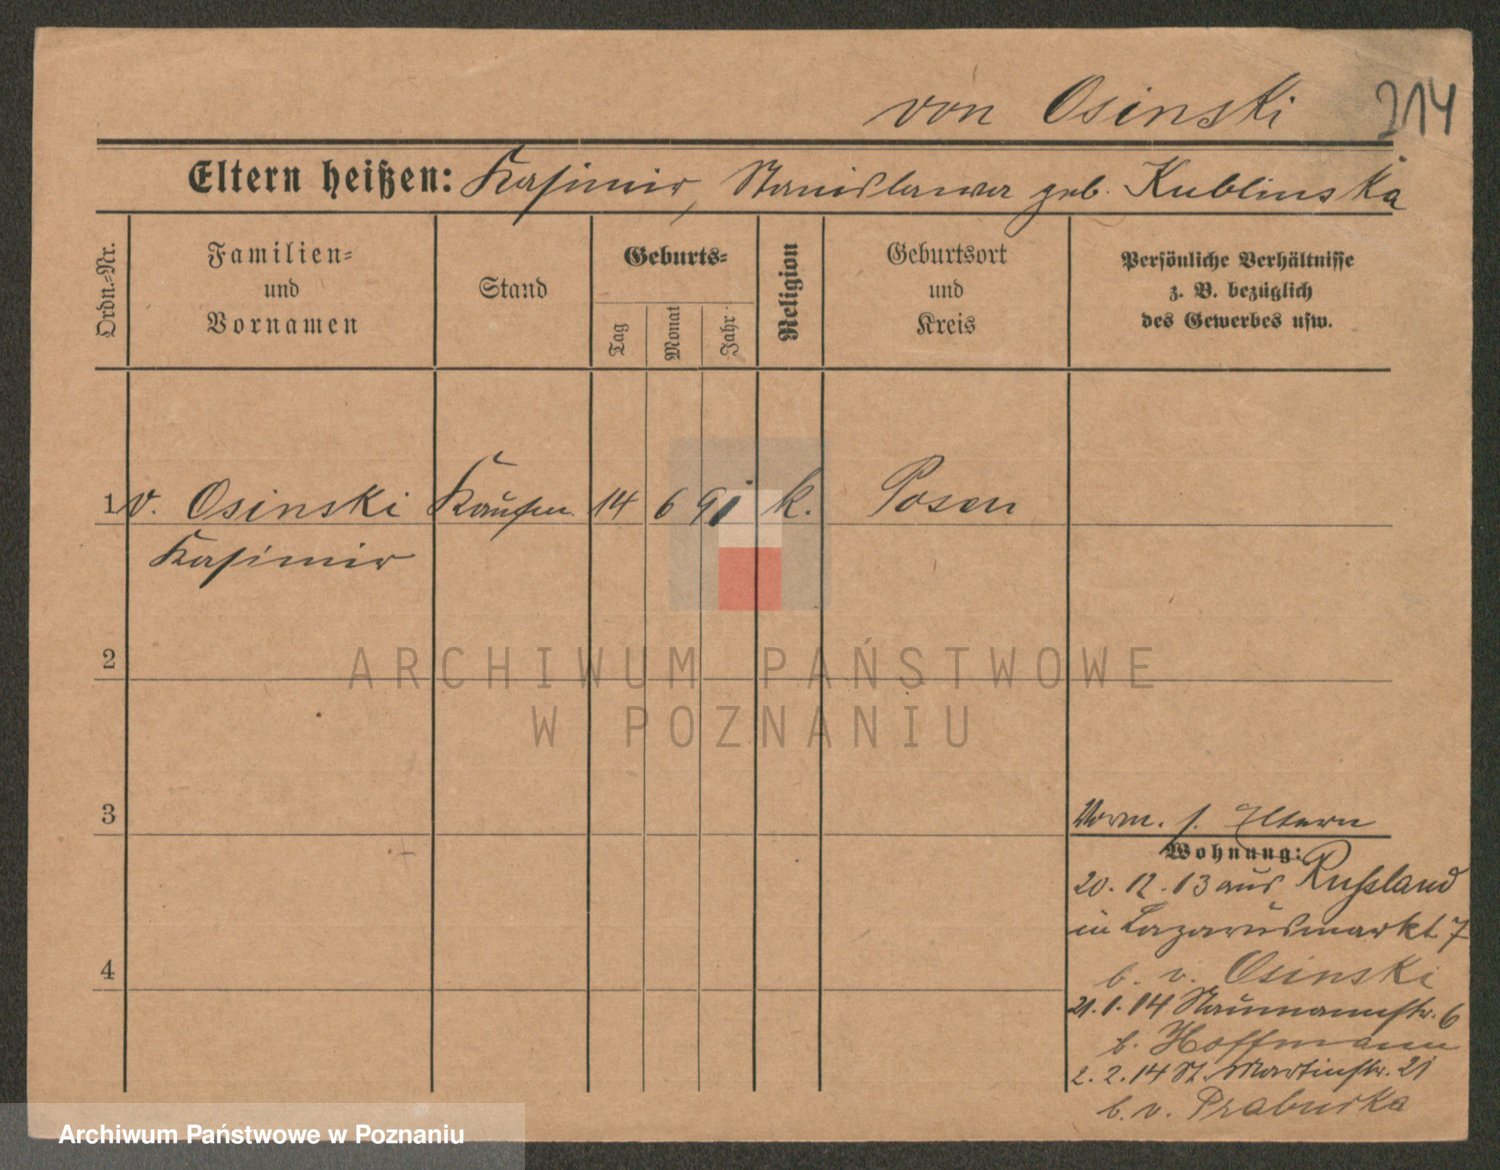 von Osinski 214
Eltern heißen: Kasimir, Stanislawa geb. Kublinska
Ordn.-Nr.
Familien-
und
Vornamen
Stand
Geburts-
Tag
Monat
Jahr
Religion
Geburtsort
und
Kreis
Persönliche Verhältnisse
z. B. bezüglich
des Gewerbes usw.
1 v. Osinski Kaufm. 14 6 91 k. Posen
Kasimir
2
3
4
Vorm. s. Eltern
Wohnung:
20. 12. 13 aus Russland
in Lazarusmarkt 7
b. v. Osinski
21. 1. 14 Naumannstr. 6
b. Hoffmann
2. 2. 14 St. Martinstr. 21
b. v.
ARCHIWUM PAŃSTWOWE
W POZNANIU
Archiwum Państwowe w Poznaniu